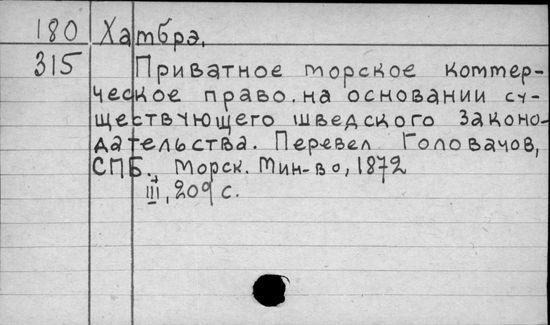 180 Хамбрэ,
315 Приватное морское коммер-
ческое право. на основании су-
ществующего шведского законо-
дательства. Перевел Головачов,
СПБ., Морск. Мин-во, 1872
III, 209 с.